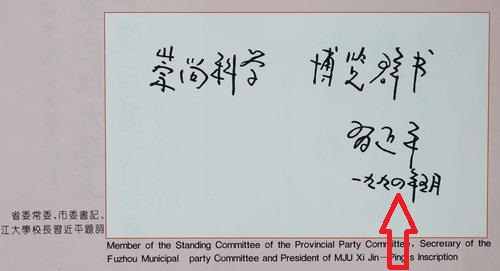 崇尚科学 博览群书
习近平
一九九四年五月
省委常委、市委書記、
江大學校長習近平題詞
Member of the Standing Committee of the Provincial Party Committee, Secretary of the
Fuzhou Municipal party Committee and President of MJU Xi Jin—Ping's Inscription